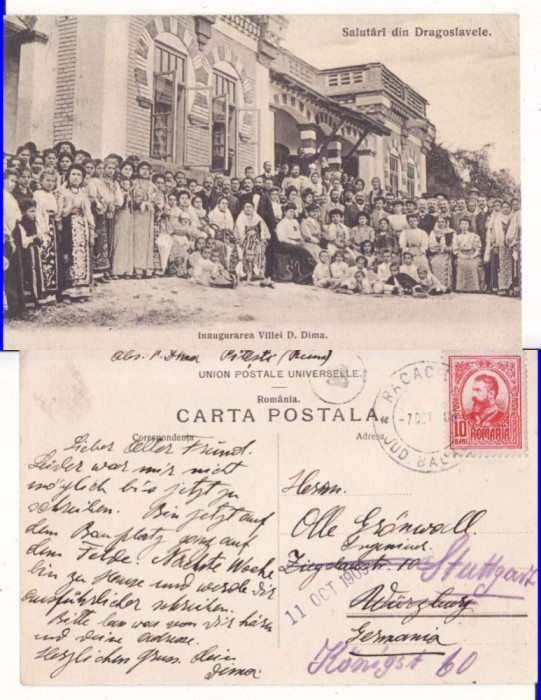 Salutări din Dragoslavele.
Inaugurarea Villei D. Dima.
Abs. P. Dima Pitesti
UNION POSTALE UNIVERSELLE.
România.
CARTA POSTALA
Corespondența
Adresa
RACAC
-7 OCT
JUD. BAC
POSTA
10
BANI
ROMANIA
Lieber Olle Freund.
Leider war mir nicht
möglich bis jetzt zu
schreiben. Bin jetzt auf
dem Bauplatz ganz auf
dem Felde. Nächste Woche
bin zu Hause und werde dir
ausführlicher schreiben.
Bitte von dir hören
und deine Adresse.
Herzlichen Gruss. Dein
Dima
Herrn.
Olle Grönwall.
10 Stuttgart
11 OCT 1909
Würzburg
Germania
Königst 60